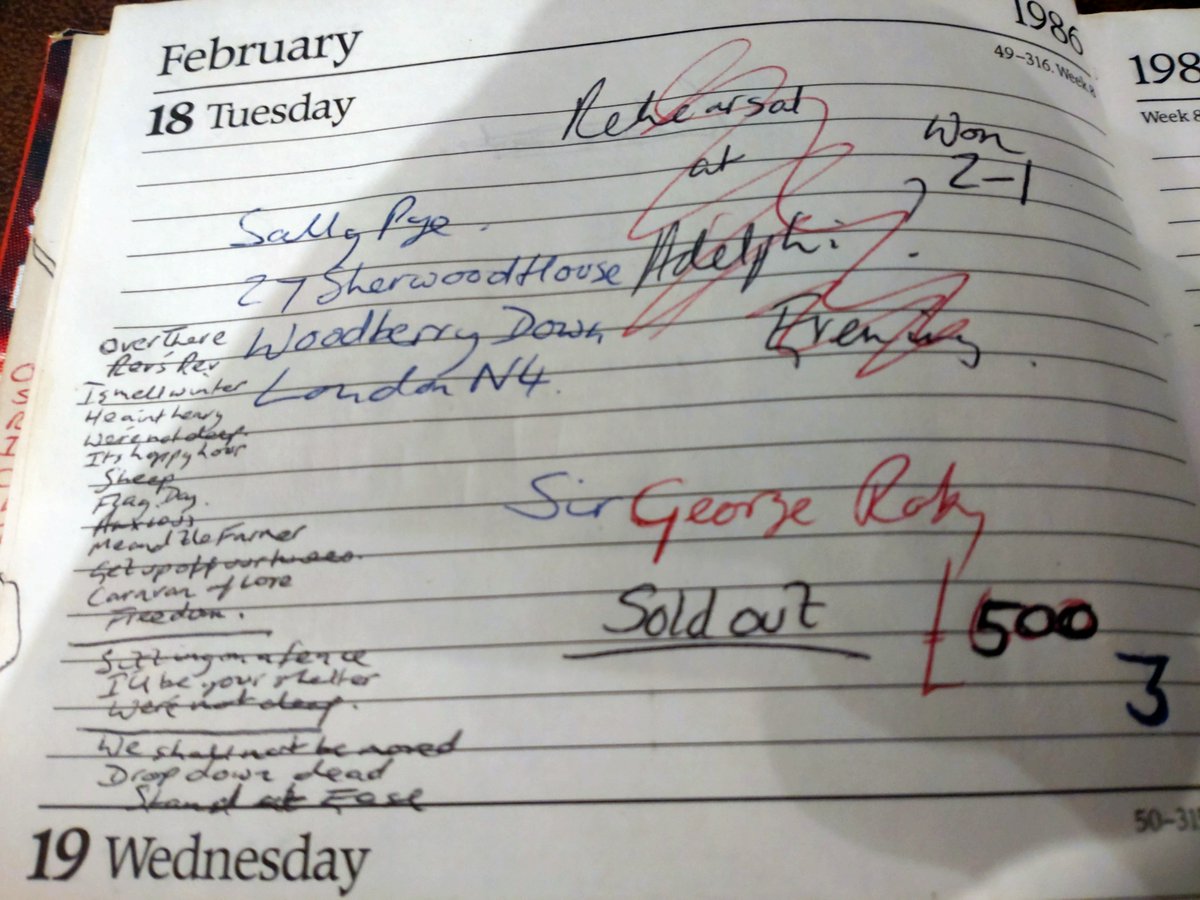 February
1986
49–316. Week 8
18 Tuesday
198
Week 8
Rehearsal
at
Adelphi
Evening
Won
2-1
Sally Pye.
27 Sherwood House
Woodberry Down
London N4.
Over There
Rev's Rev
I smell winter
He aint heavy
Were not deep.
Its happy hour
Sheep
Flag Day.
Anxious
Me and the Farmer
Get up off our knees.
Caravan of Love
Freedom.
Sitting on a fence
I'll be your shelter
Were not deep.
We shall not be moved
Drop down dead
Stand at Ease
Sir George Roby
Sold out
£500
3
19 Wednesday